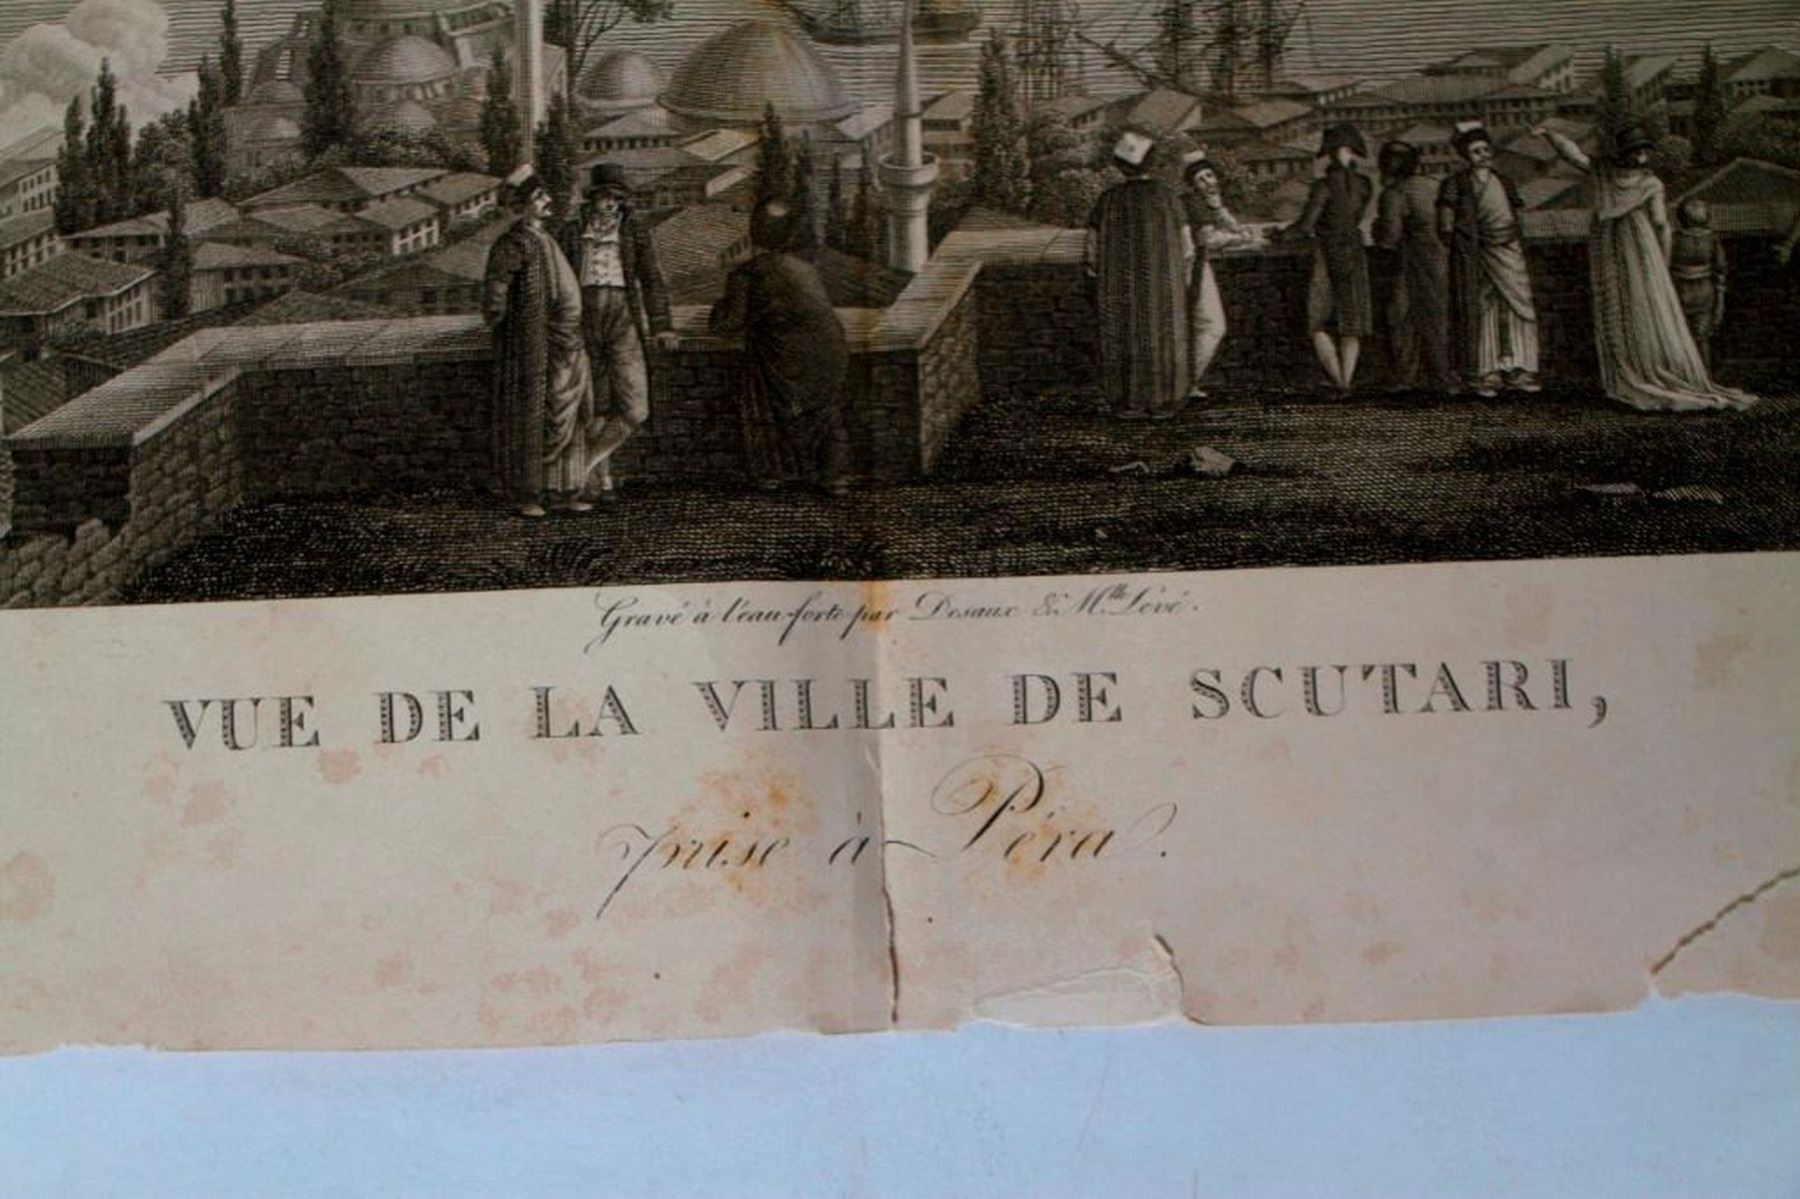 Gravé à l'eau-forte par Desaux & Mlle Lévé.
VUE DE LA VILLE DE SCUTARI,
prise à Péra.